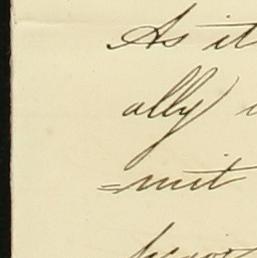 As it
ally
=mit